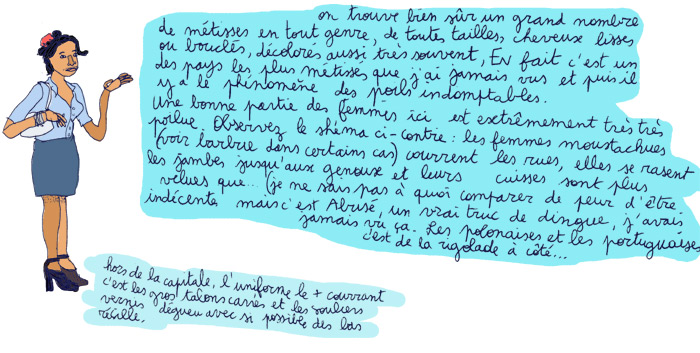 on trouve bien sûr un grand nombre
de métisses en tout genre, de toutes tailles, cheveux lisses
ou bouclés, décolorés aussi très souvent, En fait c'est un
des pays les plus métissé que j'ai jamais vus et puis il
y a le phénomène des poils indomptables.
Une bonne partie des femmes ici est extrêmement très très
poilue Observez le shéma ci-contre : les femmes moustachues
(voir barbue dans certains cas) courrent les rues, elles se rasent
les jambes jusqu'aux genoux et leurs cuisses sont plus
velues que... (je ne sais pas à quoi comparer de peur d'être
indécente mais c'est Abusé, un vrai truc de dingue, j'avais
jamais vu ça. Les polonaises et les portugaises
c'est de la rigolade à côté...
hors de la capitale, l'uniforme le + courrant
c'est les gros talons carrés et les souliers
vernis dégueu avec si possible des bas
résille.